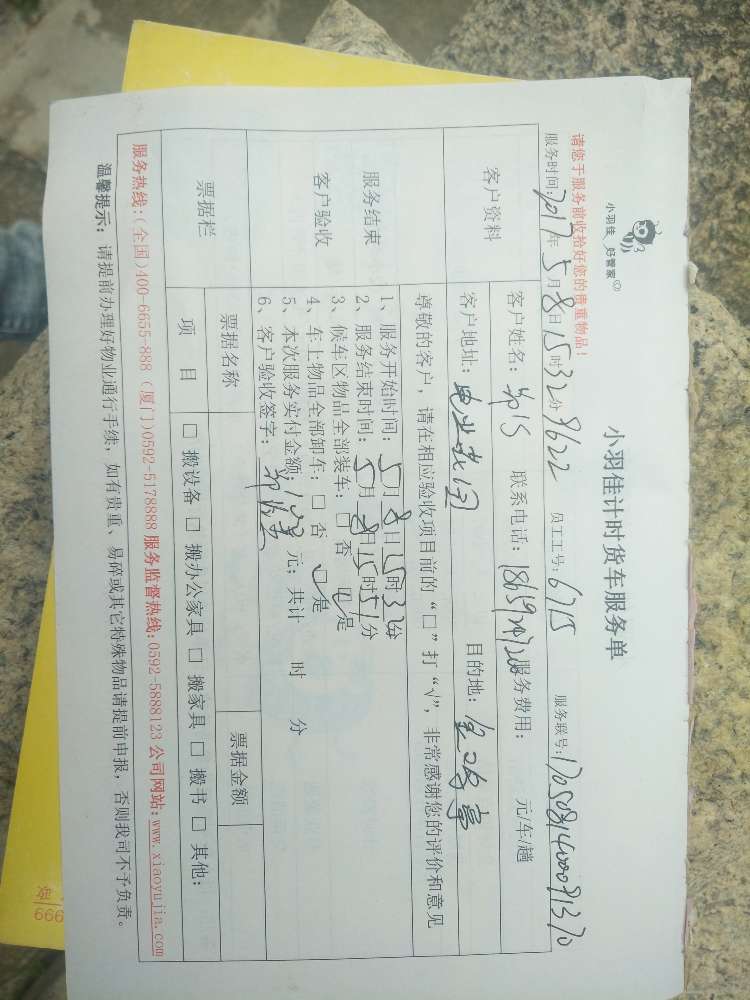 小羽佳 好管家
小羽佳计时货车服务单
请您于服务前收拾好您的贵重物品！
服务时间：2017年5月8日15时32分 9622 员工工号：6715 服务联号：
客户资料
客户姓名： 联系电话： 服务费用： 元/车/趟
客户地址： 目的地：
服务结束
客户验收
尊敬的客户，请在相应验收项目前的“□”打“√”，非常感谢您的评价和意见
1、服务开始时间：5月8日15时32分
2、服务结束时间：5月8日15时51分
3、候车区物品全部装车：□ 否 ☑是
4、车上物品全部卸车：□ 否 ☑是
5、本次服务实付金额 元；共计 时 分
6、客户验收签字：
票据栏
票据名称 票据金额
项 目 □ 搬设备 □ 搬办公家具 □ 搬家具 □ 搬书 □ 其他：
服务热线：(全国)400-6655-888 (厦门)0592-5178888 服务监督热线：0592-5888123 公司网站：www.xiaoyujia.com
温馨提示：请提前办理好物业通行手续，如有贵重、易碎或其它特殊物品请提前申报，否则我司不予负责。
666